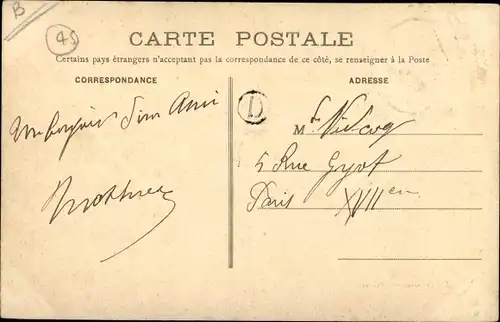 B
45
CARTE POSTALE
Certains pays étrangers n'acceptant pas la correspondance de ce côté, se renseigner à la Poste
CORRESPONDANCE
ADRESSE
Un bonjour d'un Ami
D
Mr Vidcoq
5 Rue Gyot
Paris XVII em